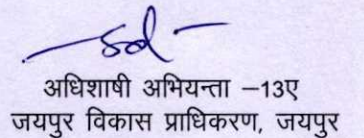 अधिशाषी अभियन्ता –13ए
जयपुर विकास प्राधिकरण, जयपुर